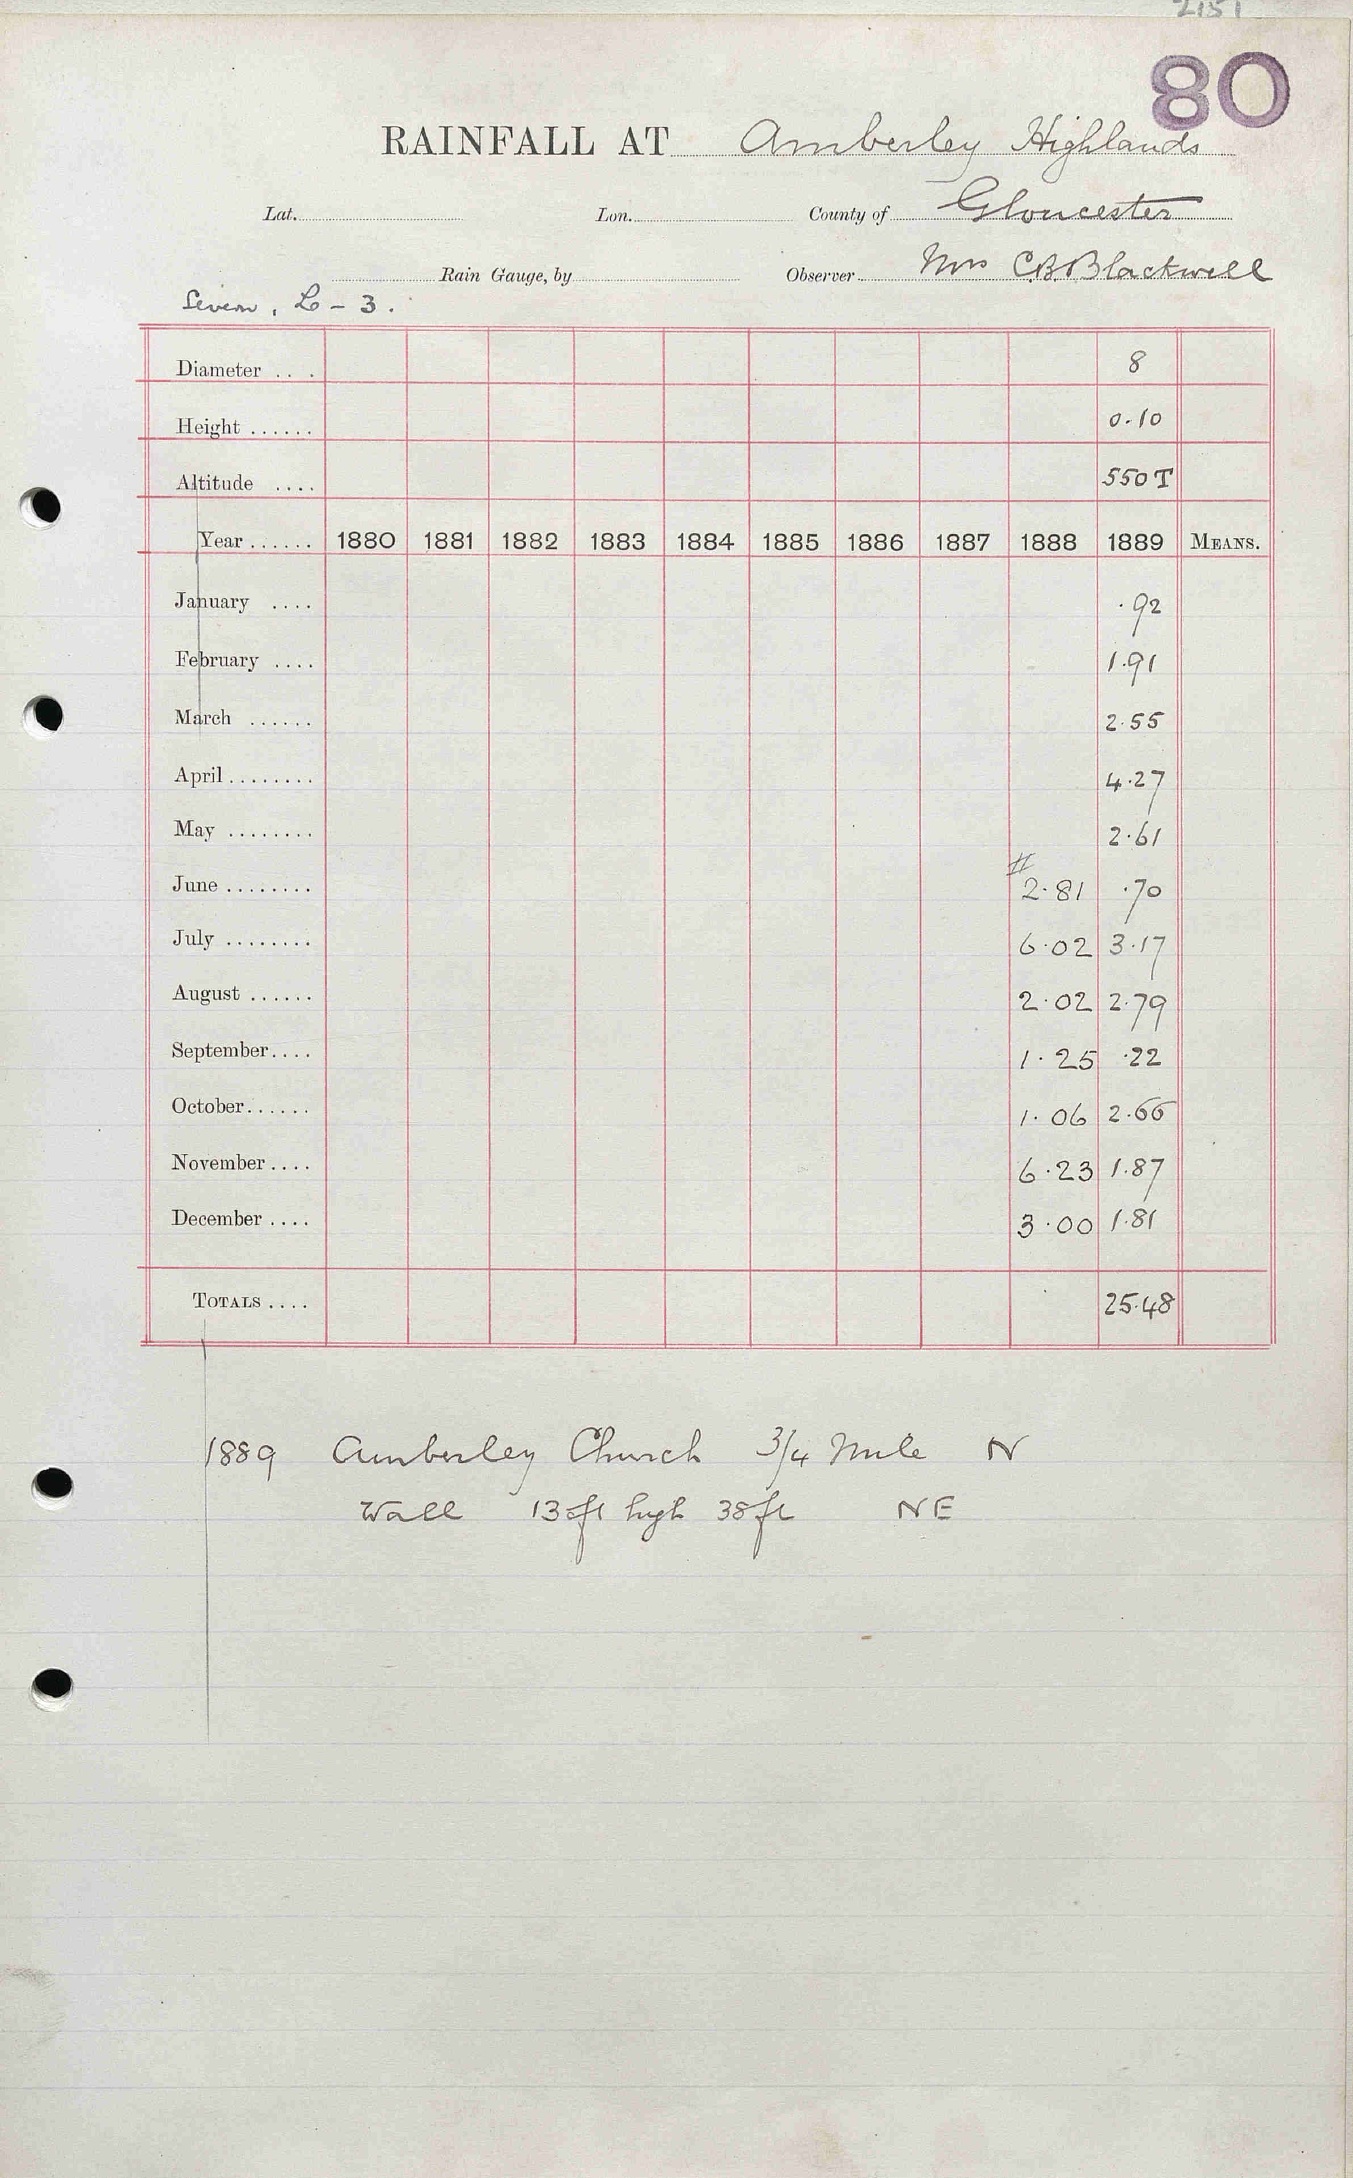 2151
80
RAINFALL AT Amberley Highlands
Lat. Lon. County of Gloucester
Rain Gauge, by Observer Mrs C.B.Blackwell
Severn, L - 3.
Diameter . . . 8
Height ...... 0.10
Altitude .... 550 T
Year ...... 1880 1881 1882 1883 1884 1885 1886 1887 1888 1889 MEANS.
January .... .92
February .... 1.91
March ...... 2.55
April ........ 4.27
May ........ 2.61
#
June ........ 2.81 .70
July ........ 6.02 3.17
August ...... 2.02 2.79
September.... 1.25 .22
October...... 1.06 2.66
November.... 6.23 1.87
December .... 3.00 1.81
TOTALS .... 25.48
1889 Amberley Church 3/4 Mile N
Wall 13 ft high 38 ft NE